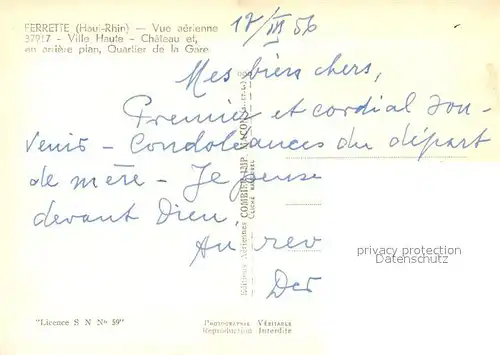 FERRETTE (Haut-Rhin) — Vue aérienne
37917 - Ville Haute - Château et,
en arrière plan, Quartier de la Gare
17/III 56
Mes biens chers,
Premier et cordial sou-
venir - Condoléances du départ
de mère - Je pense
devant Dieu,
Au rev
Der
privacy protection
Datenschutz
Editions Aériennes COMBIER IMP. MACON
"Licence S N No 59"
PHOTOGRAPHIE VÉRITABLE
Reproduction Interdite